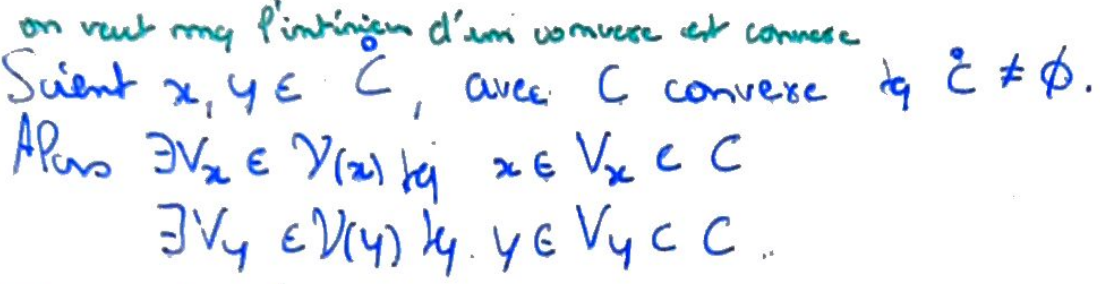 on veut mq l'intérieur d'un convexe est convexe
Soient x, y ∈ C̊, avec C convexe tq C̊ ≠ ∅.
Alors ∃Vx ∈ 𝒱(x) tq x ∈ Vx ⊂ C
∃Vy ∈ 𝒱(y) tq. y ∈ Vy ⊂ C ..